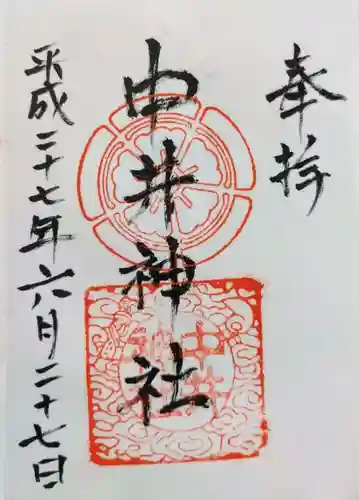 奉拝
中井神社
平成二十七年六月二十七日
中井
神社